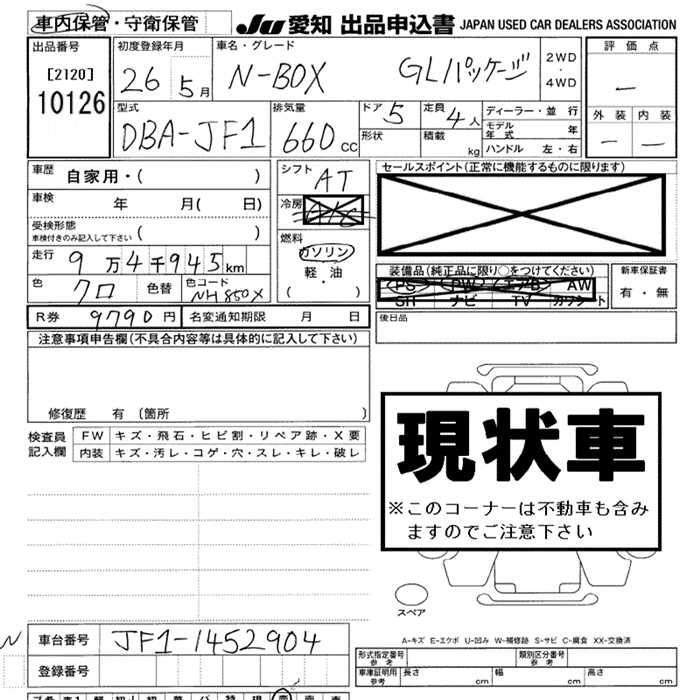 車内保管・守衛保管 JU 愛知 出品申込書 JAPAN USED CAR DEALERS ASSOCIATION
出品番号 初度登録年月 車名・グレード 2WD・4WD 評価点
[2120] 26 5月 N-BOX GLパッケージ ー
10126
型式 排気量 ドア 定員 ディーラー・並行 外装 内装
DBA-JF1 660cc 5 4人 モデル年式 年 ー ー
形状 積載 kg ハンドル 左・右
車歴 自家用・( ) シフト AT セールスポイント(正常に機能するものに限ります)
車検 年 月( 日) 冷房
受検形態 ( )
車検付きのみ記入して下さい
燃料 ガソリン
走行 9万4千945km 軽・油 装備品(純正品に限り○をつけてください) 新車保証書
色 クロ 色替 色コード NH850X ( ) PS PW エアB AW 有・無
SR ナビ TV カワシート
R券 9790円 名変通知期限 月 日 後日品
注意事項申告欄(不具合内容等は具体的に記入して下さい)
修復歴 有 (箇所 )
検査員 FW キズ・飛石・ヒビ割・リペア跡・X要
記入欄 内装 キズ・汚レ・コゲ・穴・スレ・キレ・破レ
現状車
※このコーナーは不動車も含み
ますのでご注意下さい
スペア
A-キズ E-エクボ U-凹み W-補修跡 S-サビ C-腐食 XX-交換済
車台番号 JF1-1452904
登録番号
形式指定番号 参考 類別区分番号 参考
車庫証明用 参考 長さ cm 幅 cm 高さ cm